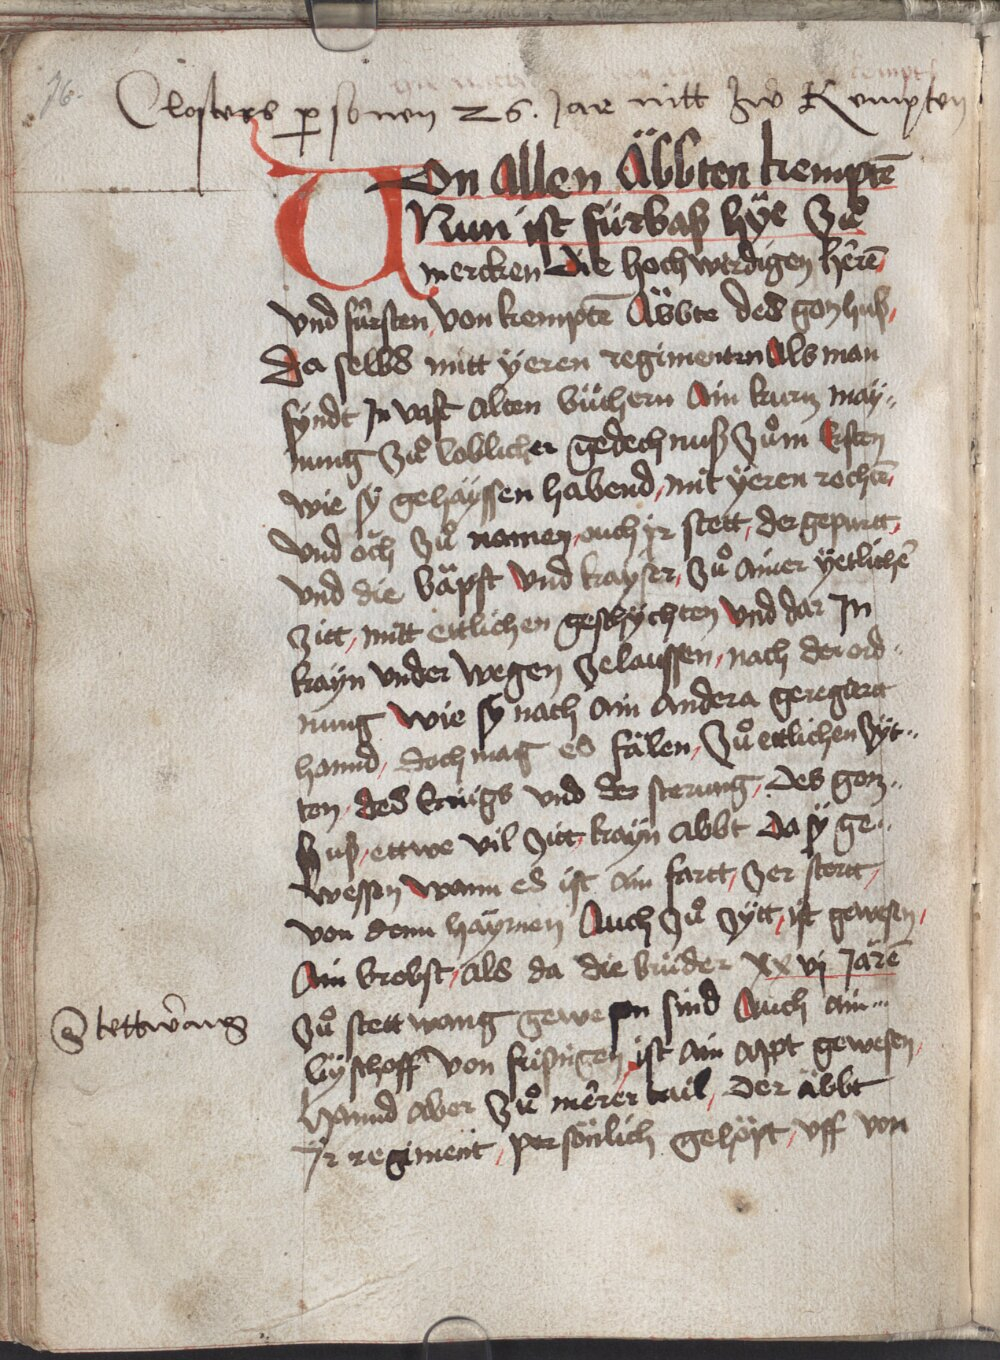 76.
Closters personen 26. jar nitt zů Kempten
Von allen Äbbten kemptē
Nun ist fürbas hÿe zů
mercken die hochwirdigen hērē
vnd fürsten, von kemptē Äbbte des gozhus,
Da selbs mitt ÿeren regimentrn Als man
fyndt Jn vast alten bůchern Ain kurtz maÿ„
nung zů loblicher gedechnuß zům ersten
wie sÿ gehaÿssen habend, mit ÿeren rechtē,
vnd och zů namen, ouch jr stett, der gepurtt,
vnd die bäpst vnd kayser, zů ainer ÿetlichē
zitt, mitt ettlichen geschychten vnd dar Jn
kayn vnder wegen zelaussen, nach der ord„
nung wie sÿ nach ain andera geregiert
hannd, doch mag es fälen, zů ettlichen zÿt„
ten, des kriegs vnd der sterung, des goz„
hus, ettwe vil zitt kayn abbt da sÿ ge„
wessen wann es ist ain fartt, zer stertt,
von denn haÿmen Auch zů zÿtt, ist gewesen,
Ain brobst, als da die brüder xxvj Jarē
Stettwang
zů stettwang gewesen sind Auch ain„
byschoff von frisingen ist ain appt gewesen,
Hannd aber zů merer tail, der äbbt
Jr regiment, persönlich gehept, vff von